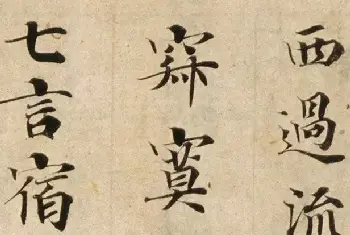 西過流
寂寞
七言宿